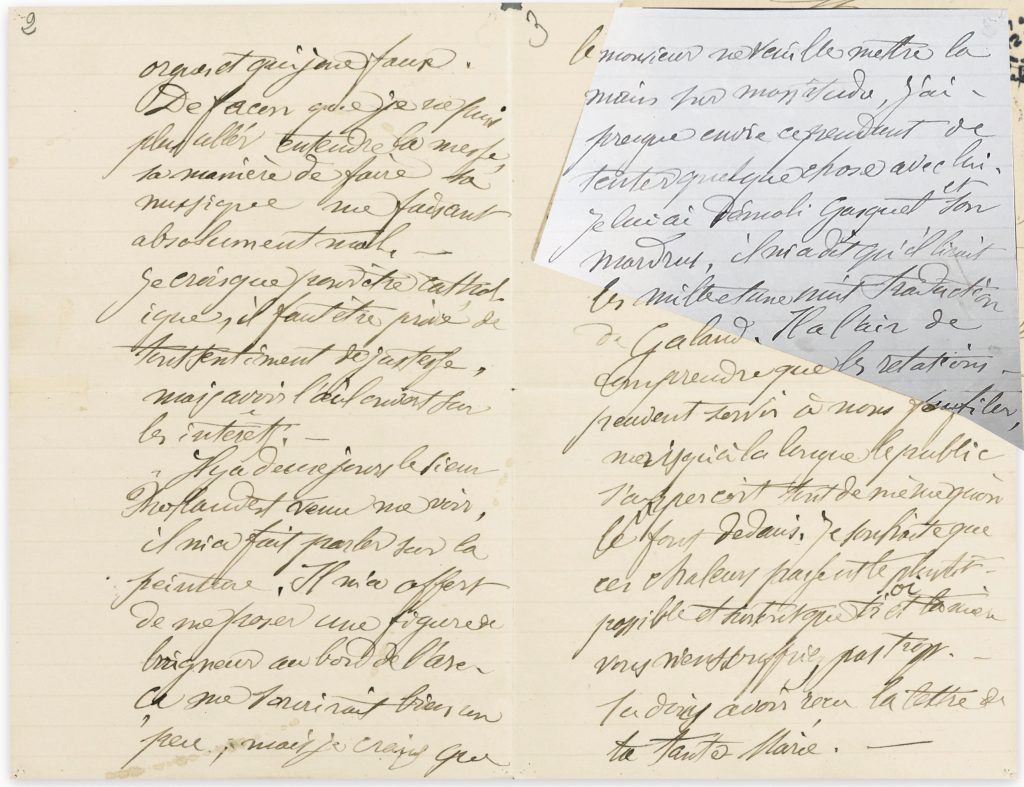 2
orgues et qui joue faux.
De façon que je ne puis
plus aller entendre la messe,
sa manière de faire la
mussique me faisant
absolument mal. —
Je crois que pour être cathol-
ique, il faut être privé de
tout sentiment de justesse,
mais avoir l'œil ouvert sur
les intérêt. —
Il y a deux jours le sieur
Rolland est venu me voir,
il m'a fait parler sur la
peinture. Il m'a offert
de me poser une figure de
baigneur au bord de l'arc –
Ça me sourirait bien un
peu, mais je crains que
3
le monsieur ne veuille mettre la
main sur mon étude, j'ai –
presque envie cependant de
tenter quelque chose avec lui.
Je lui ai démoli Gasquet et son
mardrus, il m'a dit qu'il lirait
les mille et une nuit traduction
de Galand. Il a l'air de
comprendre que les relations –
peuvent servir à nous faufiler,
mais qu'à la longue le public
s'apperçoit tout de même qu'on
le fout dedans. Je souhaite que
ces chaleurs passent le plutôt –
possible et surtout que toi et ta mère
vous n'en souffriez pas trop. —
tu dois avoir reçu la lettre de
ta tante Marie. —